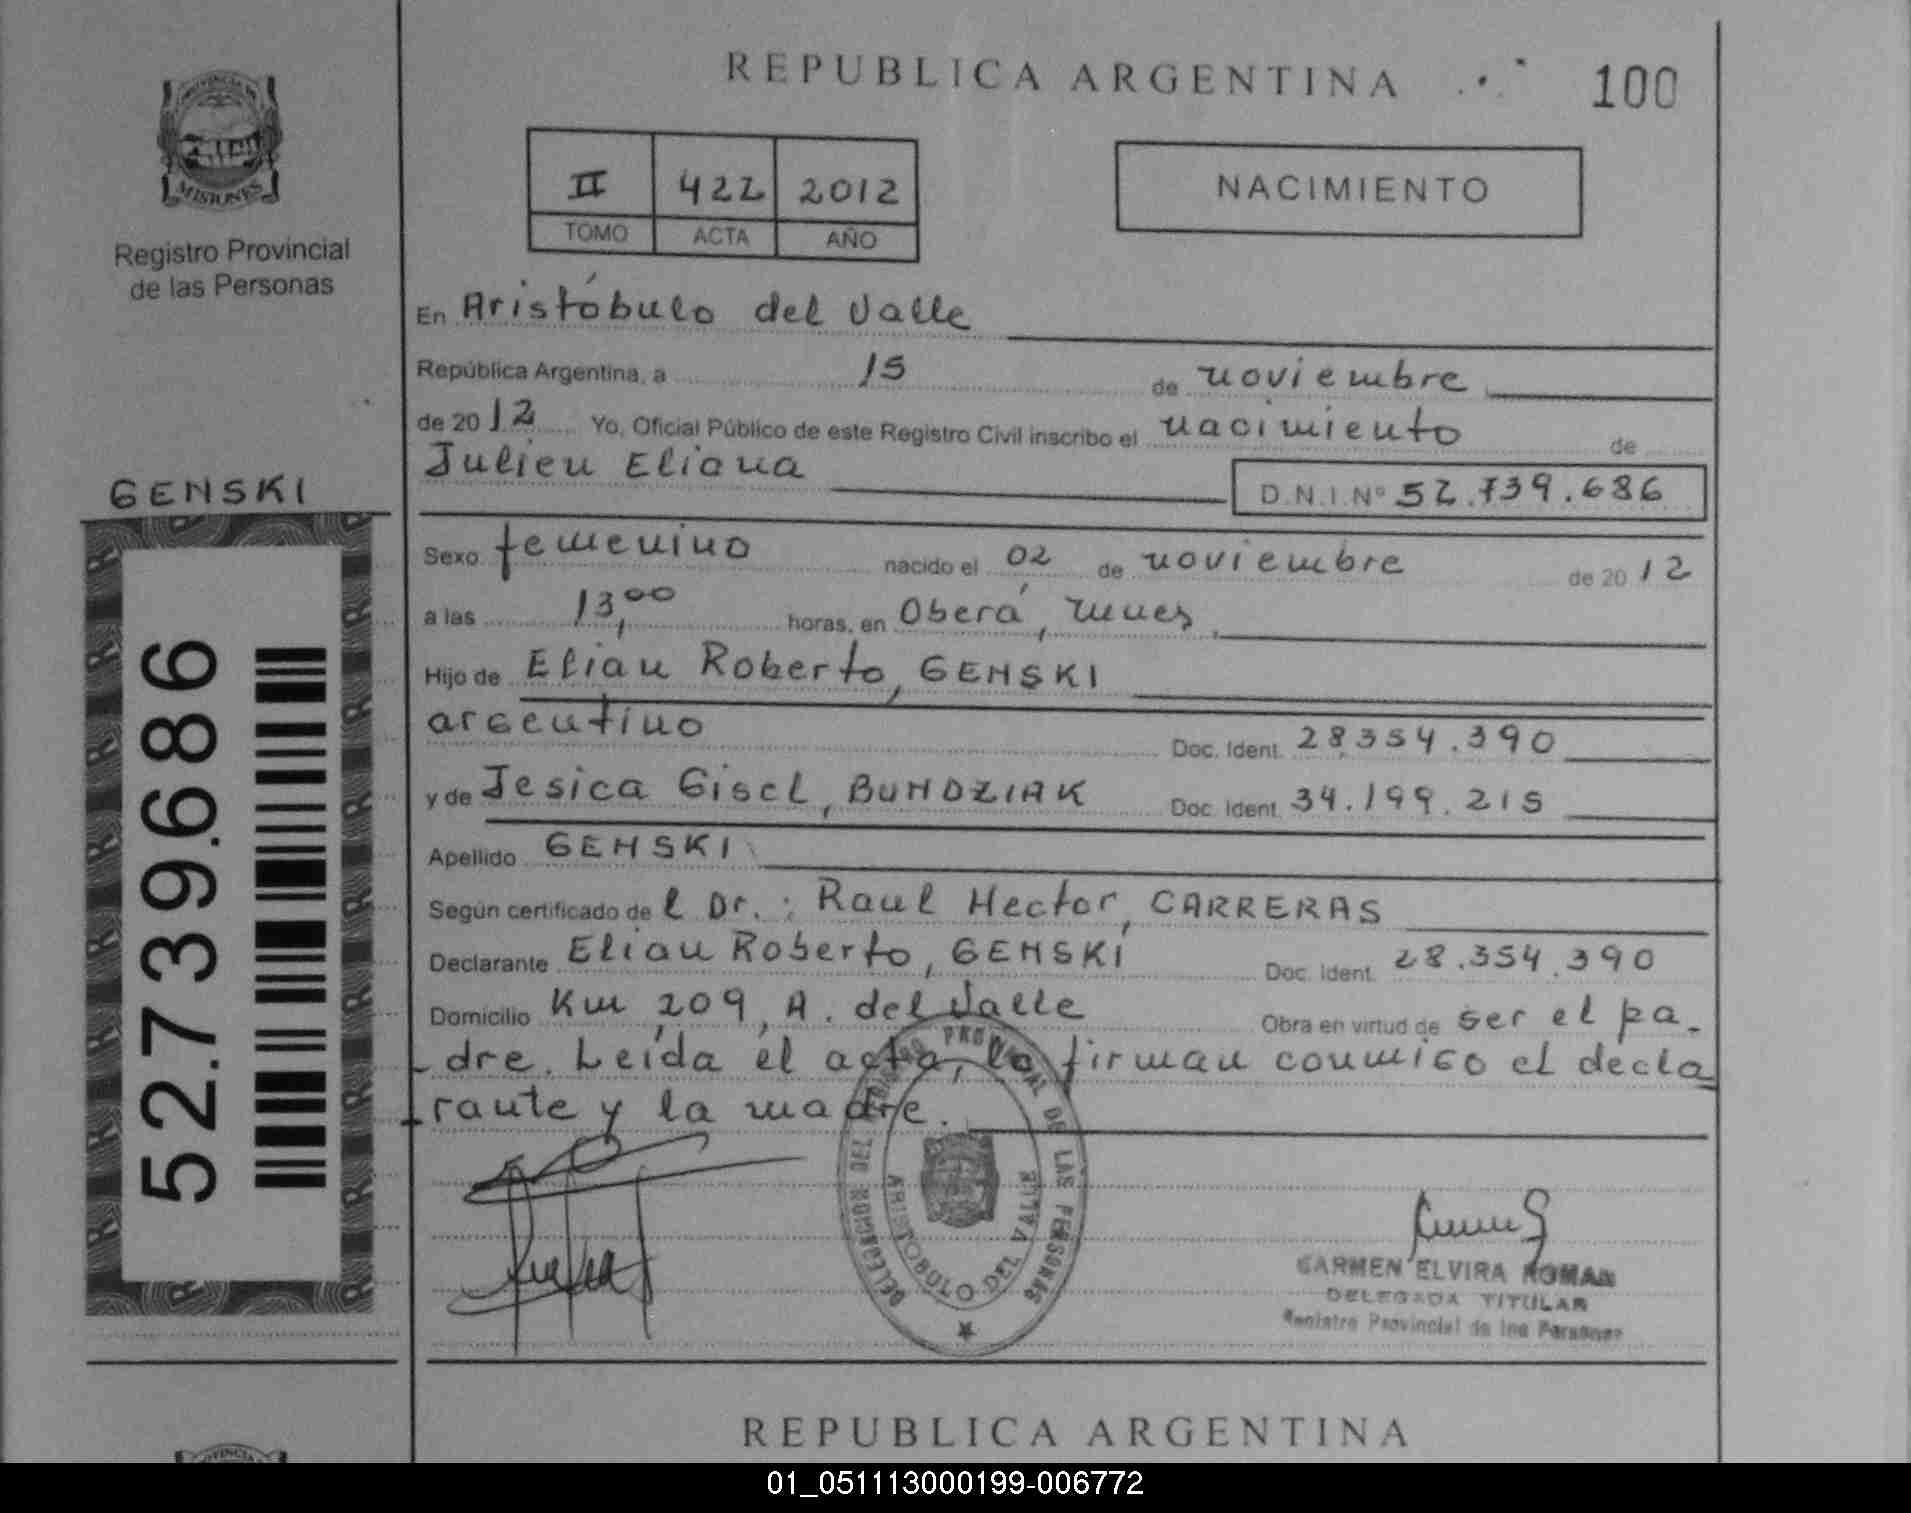 REPUBLICA ARGENTINA
100
PROVINCIA DE
MISIONES
Registro Provincial
de las Personas
II 422 2012
TOMO ACTA AÑO
NACIMIENTO
En Aristóbulo del Valle
República Argentina, a 15 de noviembre
de 2012 Yo, Oficial Público de este Registro Civil inscribo el nacimiento de
Julieu Eliana
D.N.I. Nº 52.739.686
GENSKI
52.739.686
Sexo femenino nacido el 02 de noviembre de 2012
a las 13,00 horas, en Oberá, Mnes,
Hijo de Elian Roberto, GENSKI
argentino Doc. Ident. 28.354.390
y de Jesica Gisel, BUNDZIAK Doc. Ident. 34.199.215
Apellido GENSKI
Según certificado de l Dr.: Raul Hector, CARRERAS
Declarante Elian Roberto, GENSKI Doc. Ident. 28.354.390
Domicilio Km 209, A. del Valle Obra en virtud de ser el pa-
-dre. Leída el acta, la firman conmigo el decla
-rante y la madre.
REGISTRO PROVINCIAL DE LAS PERSONAS
DELEGACION DEL
ARISTOBULO DEL VALLE
CARMEN ELVIRA ROMAN
DELEGADA TITULAR
Registro Provincial de las Personas
REPUBLICA ARGENTINA
01_051113000199-006772